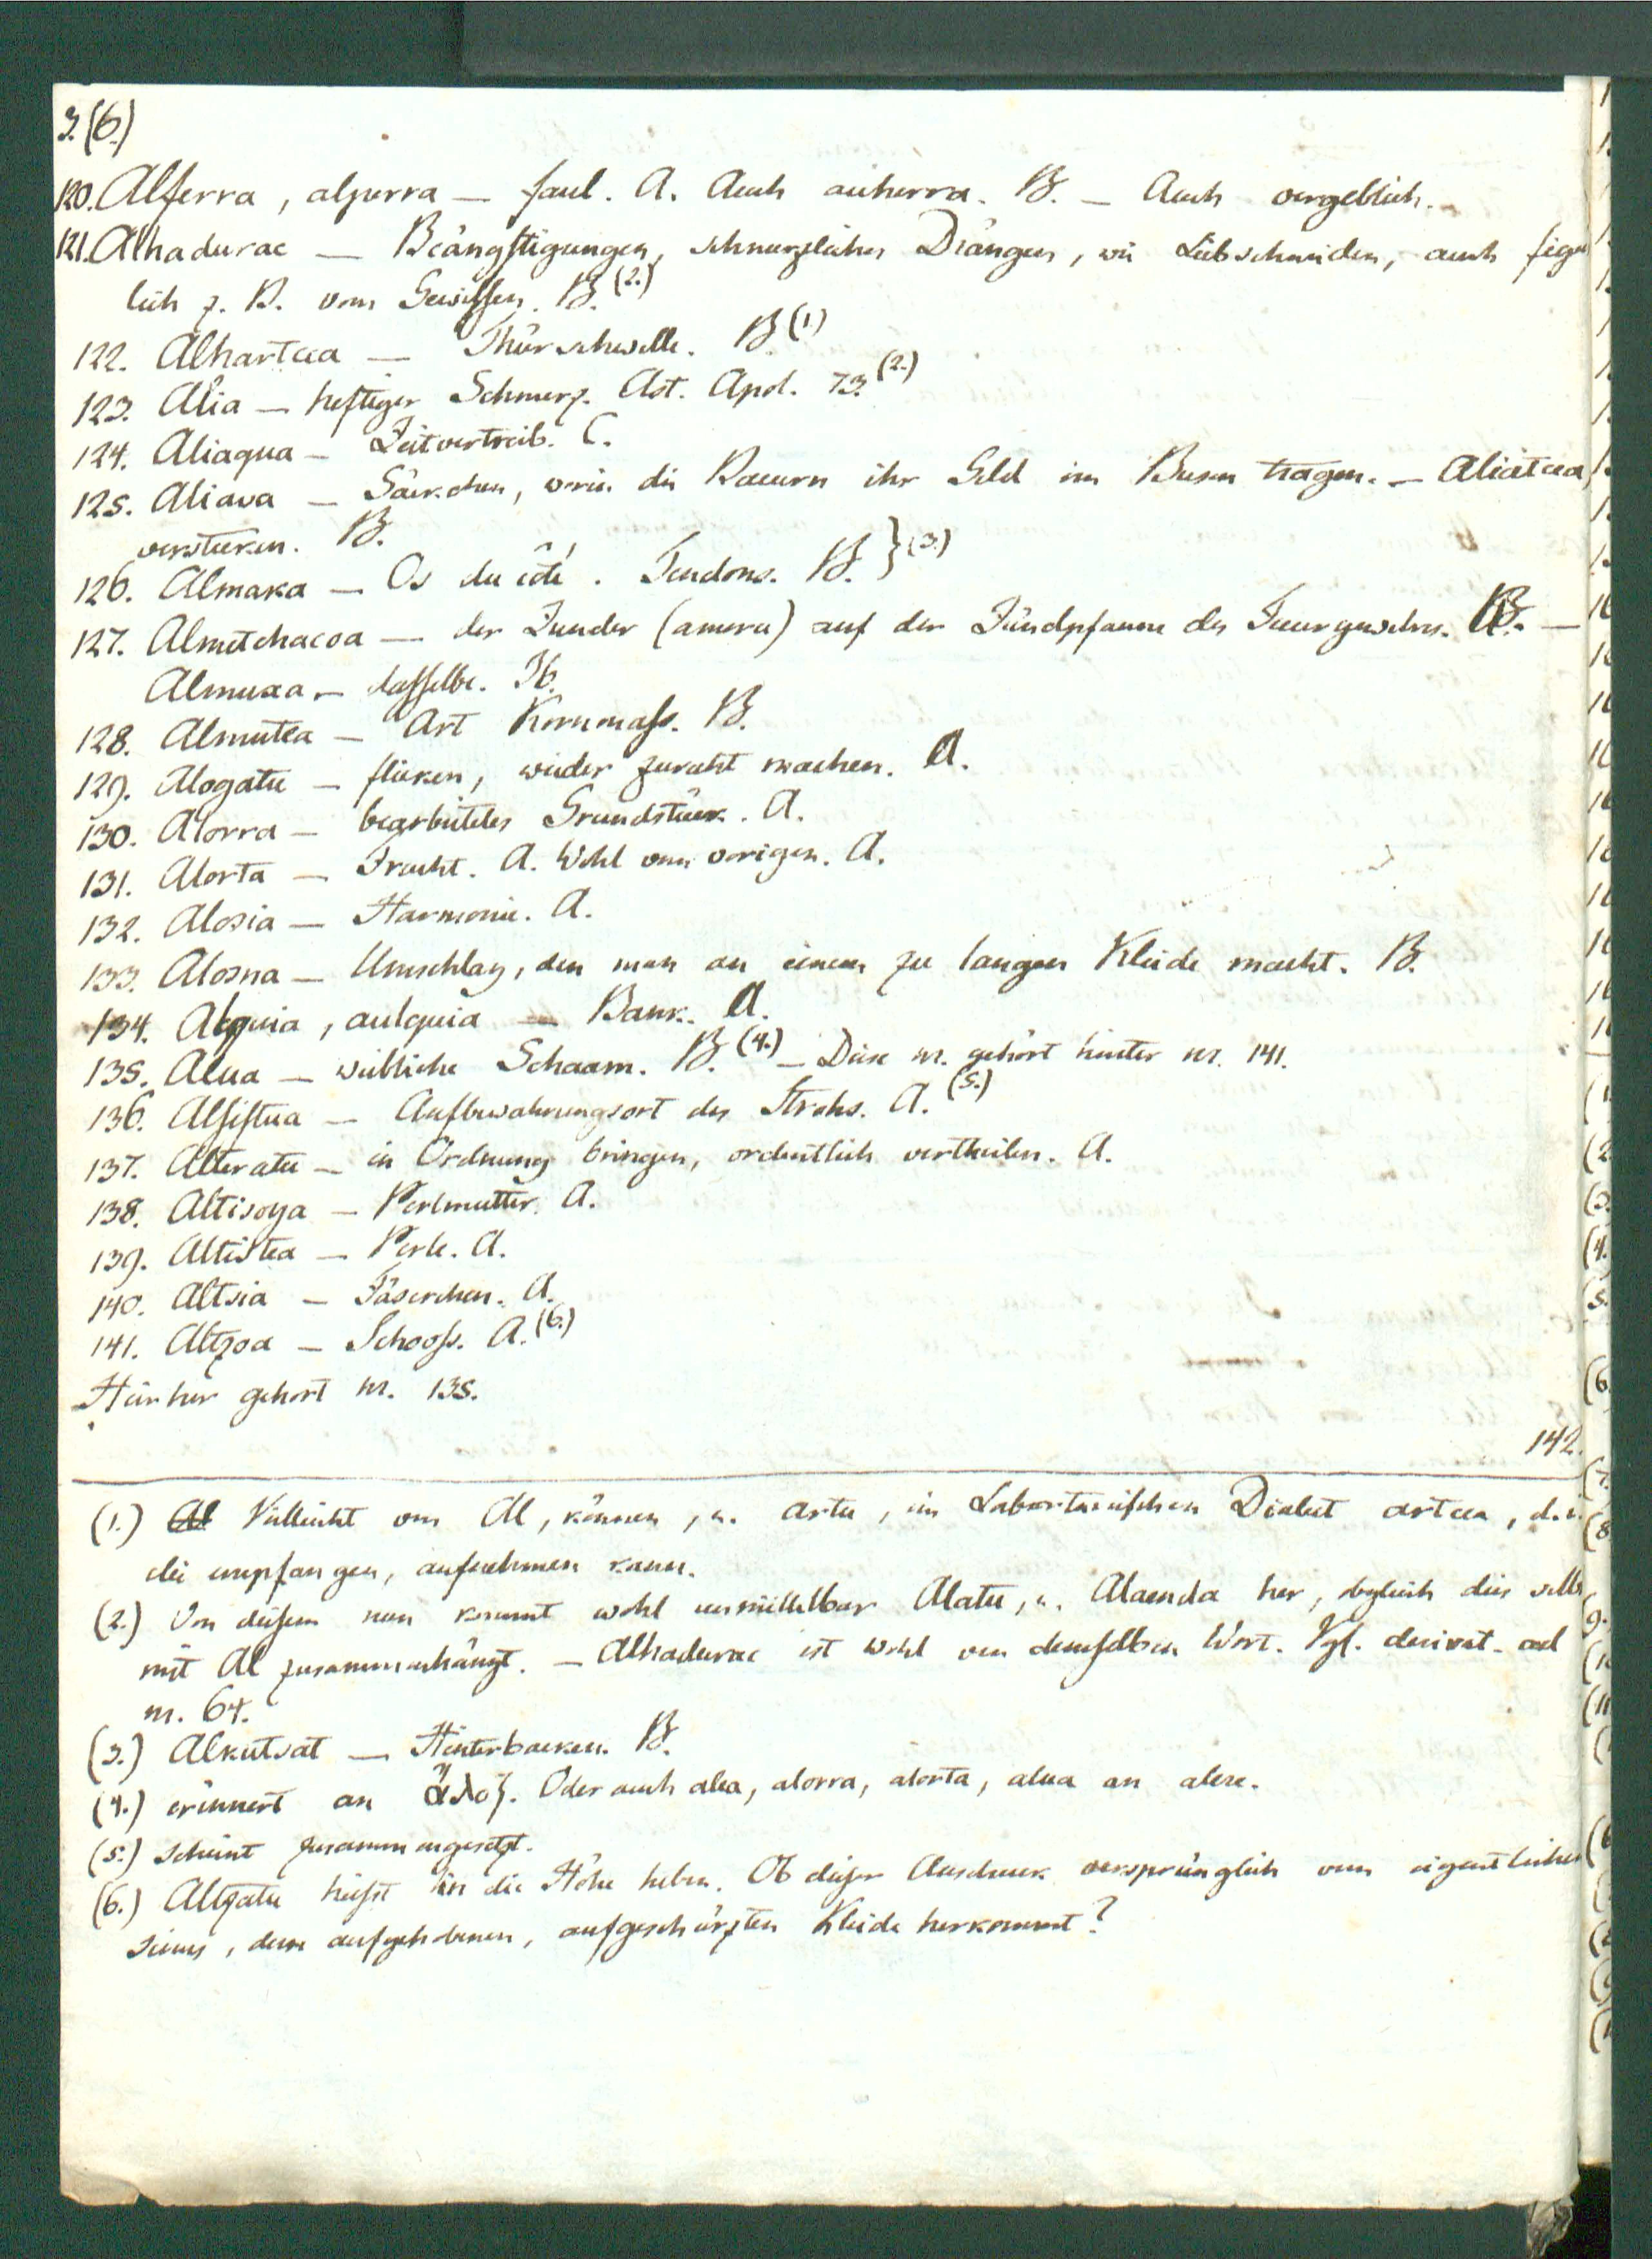 3.(6.)
120. Alferra, alperra — faul. A. Auch auherra. B. — Auch vergeblich.
121. Alhadurac — Beängstigungen, schmerzliches Drängen, wie Leibschneiden, auch figür
lich z. B. vom Gewissen. B. (2.)
122. Alhartcea — Thürschwelle. B (1)
123. Alia — heftiger Schmerz. Ast. Apol. 73. (2.)
124. Aliagua — Zeitvertreib. C.
125. Aliava — Säckchen, worin die Bauern ihr Geld im Busen tragen. — Aliatcea
verstecken. B.
126. Almaka — Os du côté. Tendons. B. } (3.)
127. Almutchacoa — der Zunder (amorce) auf der Zündpfanne des Feuergewehrs. B. —
Almuxa — dasselbe. Ib.
128. Almutea — Art Kornmass. B.
129. Alogatu — flicken, wieder zurecht machen. A.
130. Alorra — bearbeitetes Grundstück. A.
131. Alorta — Tracht. A. Wohl vom vorigen. A.
132. Alosia — Harmonie. A.
133. Alosna — Umschlag, den man an einem zu langen Kleide macht. B.
134. Alquia, aulquia — Bank. A.
135. Alua — weibliche Schaam. B. (4.) — Diese nr. gehört hinter nr. 141.
136. Alfistua — Aufbewahrungsort des Strohs. A. (5.)
137. Alteratu — in Ordnung bringen, ordentlich vertheilen. A.
138. Altisoya — Perlmutter. A.
139. Altistea — Perle. A.
140. Altsia — Fäserchen. A.
141. Altzoa — Schooss. A. (6.)
Hierher gehört nr. 135.
142.
(1.) Vielleicht von Al, können, u. artu, im Labortanischen Dialect artcea, d. i.
die empfangen, aufnehmen kann.
(2.) Von diesem nun kommt wohl unmittelbar Alatu, u. Alaenda her, obgleich dies selbst
mit Al zusammenhängt. — Alhadurac ist wohl von demselben Wort. Vgl. derivat. ad
nr. 64.
(3.) Alkutsat — Hinterbacken. B.
(4.) erinnert an ἄλοξ. Oder auch alea, alorra, alorta, alua an alere.
(5.) scheint zusammengesetzt.
(6.) Altzatu heisst in die Höhe heben. Ob dieser Ausdruck ursprünglich vom eigentlichen
sinus, dem aufgehobenen, aufgeschürzten Kleide herkommt?